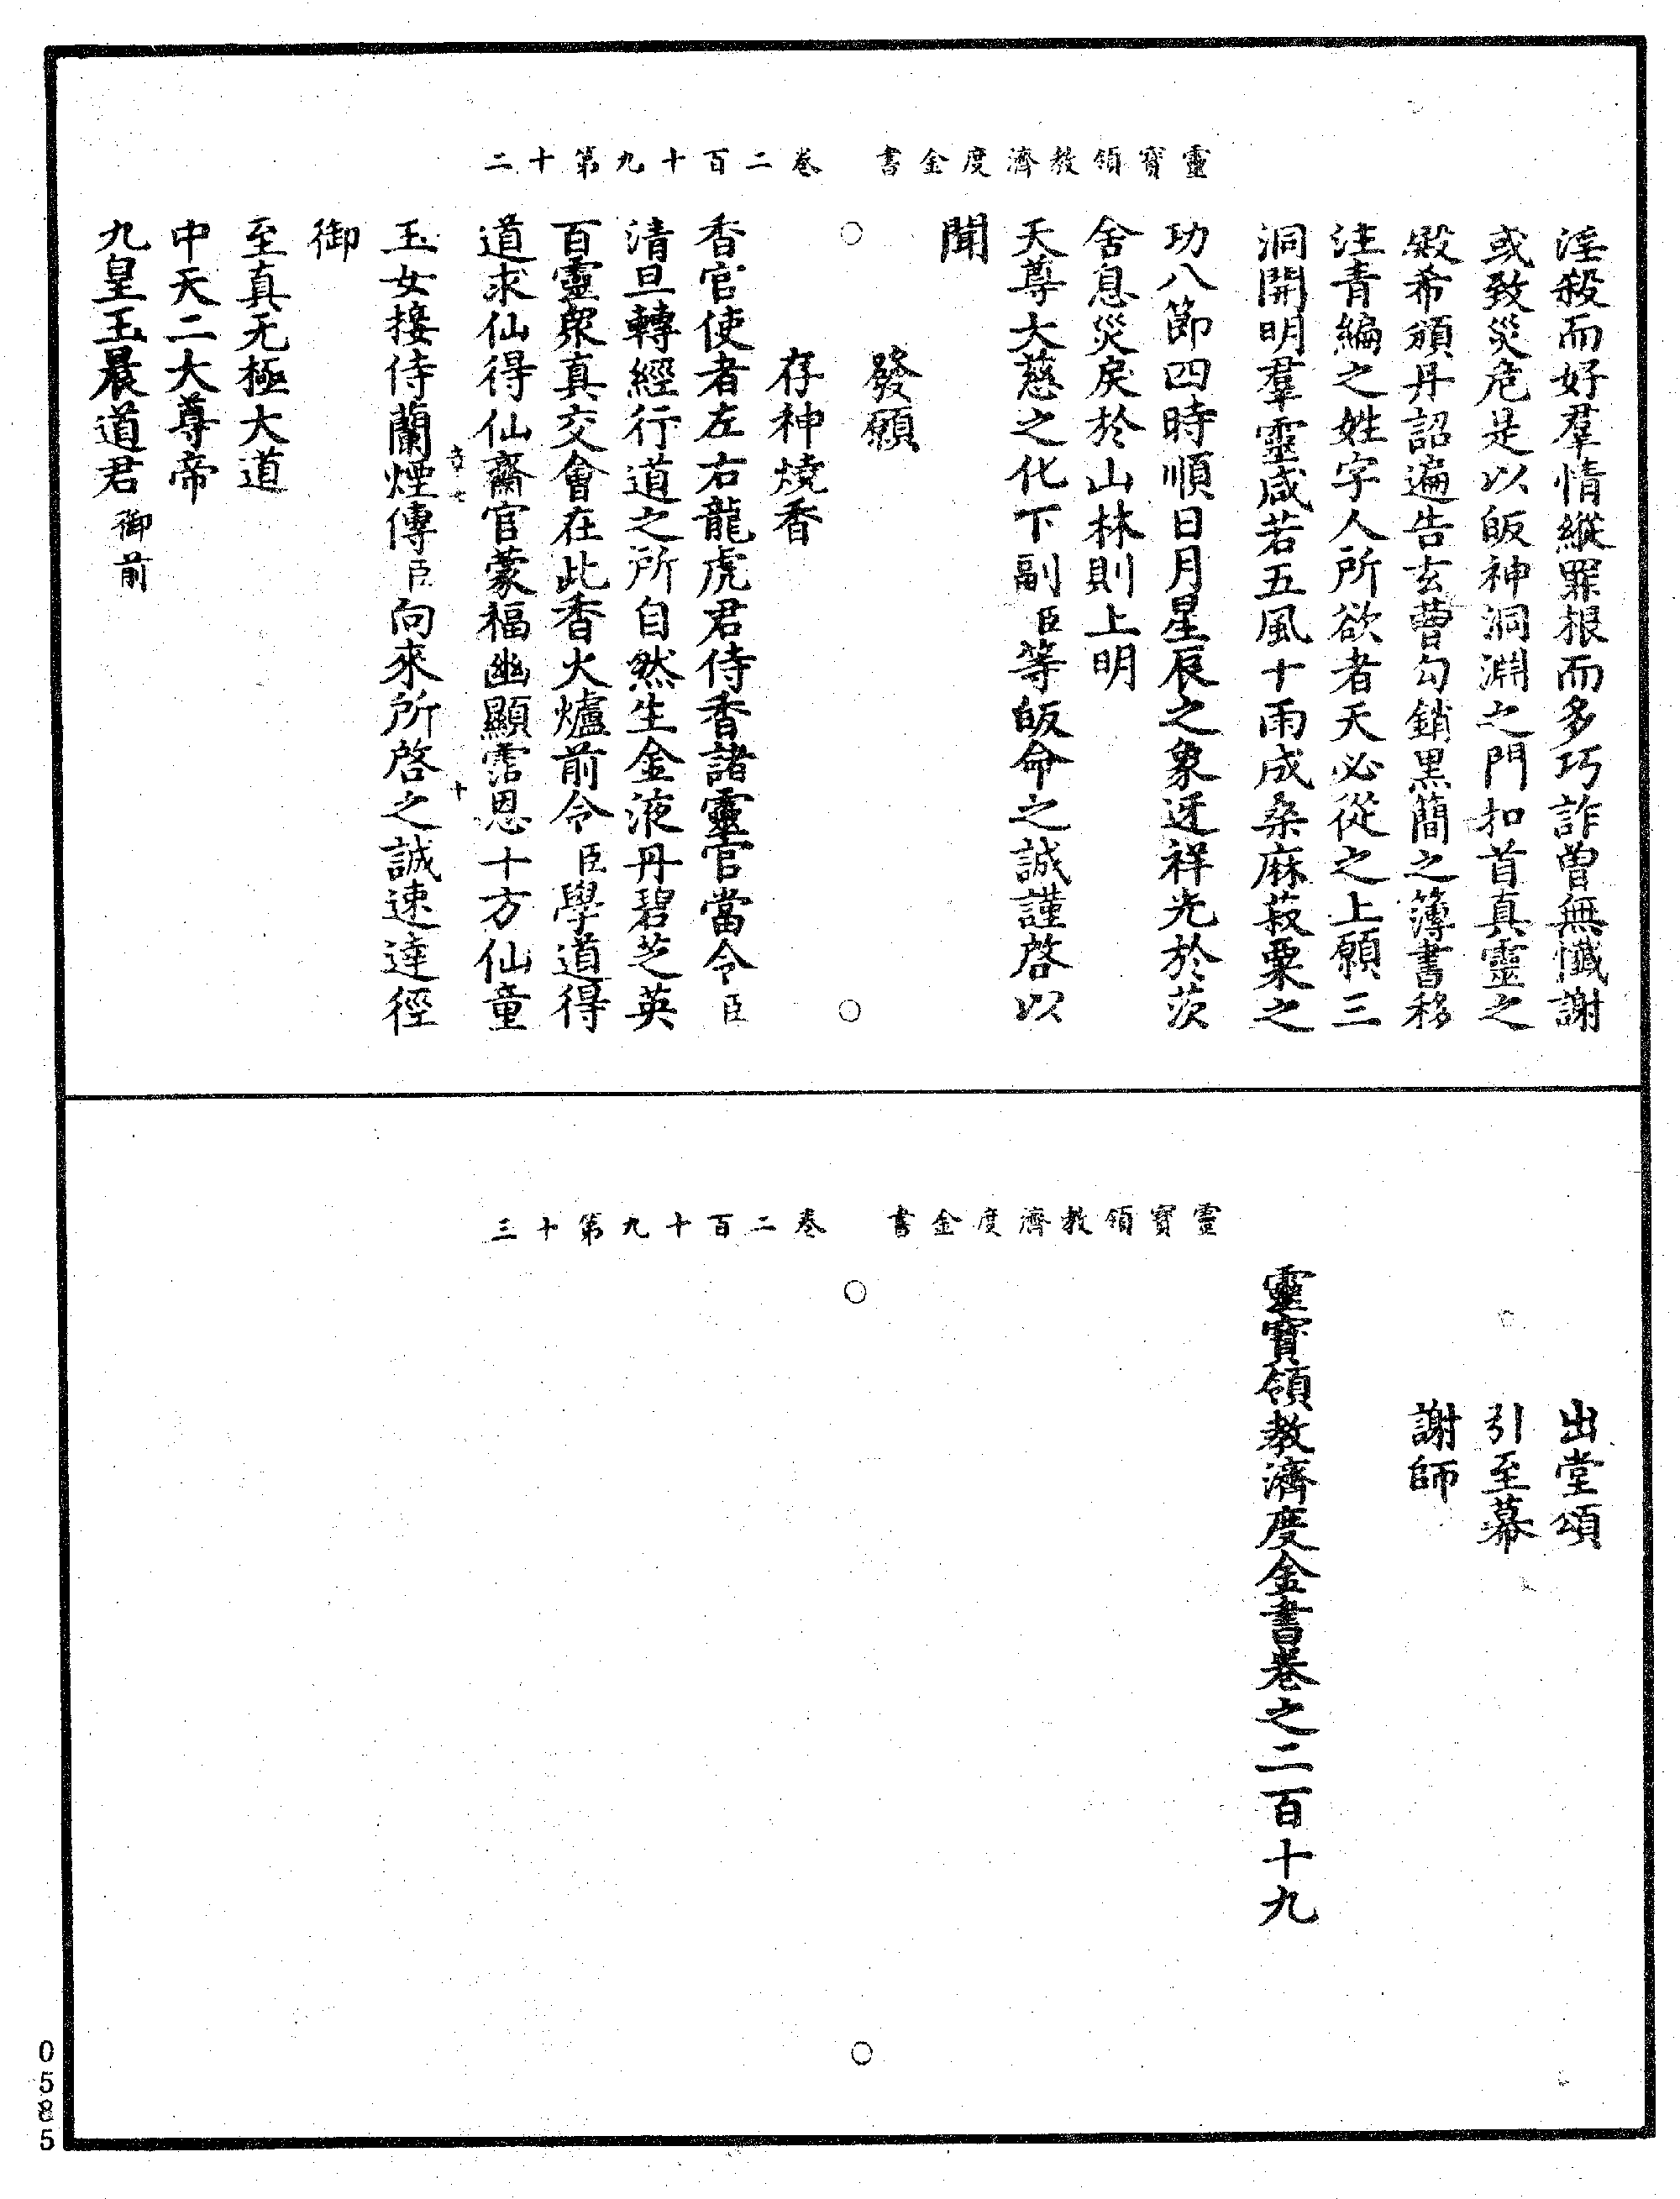 靈寶領教濟度金書　卷二百十九第十二
淫殺而好羣情縱罪根而多巧詐曾無懺謝
或致災危是以皈神洞淵之門扣首真靈之
殿希頒丹詔遍告玄曹勾銷黑簡之簿書移
注青編之姓字人所欲者天必從之上願三
洞開明羣靈咸若五風十雨成桑麻菽粟之
功八節四時順日月星辰之象迓祥光於茨
舍息災戾於山林則上明
天尊大慈之化下副臣等皈命之誠謹啓以
聞
發願
存神燒香
香官使者左右龍虎君侍香諸靈官當令臣
清旦轉經行道之所自然生金液丹碧芝英
百靈衆真交會在此香火爐前令臣學道得
道求仙得仙齋官蒙福幽顯霑恩十方仙童
玉女接侍蘭煙傳臣向來所啓之誠速達徑
御
至真无極大道
中天二大尊帝
九皇玉晨道君御前
靈寶領教濟度金書　卷二百十九第十三
出堂頌
引至幕
謝師
靈寶領教濟度金書卷之二百十九
0585